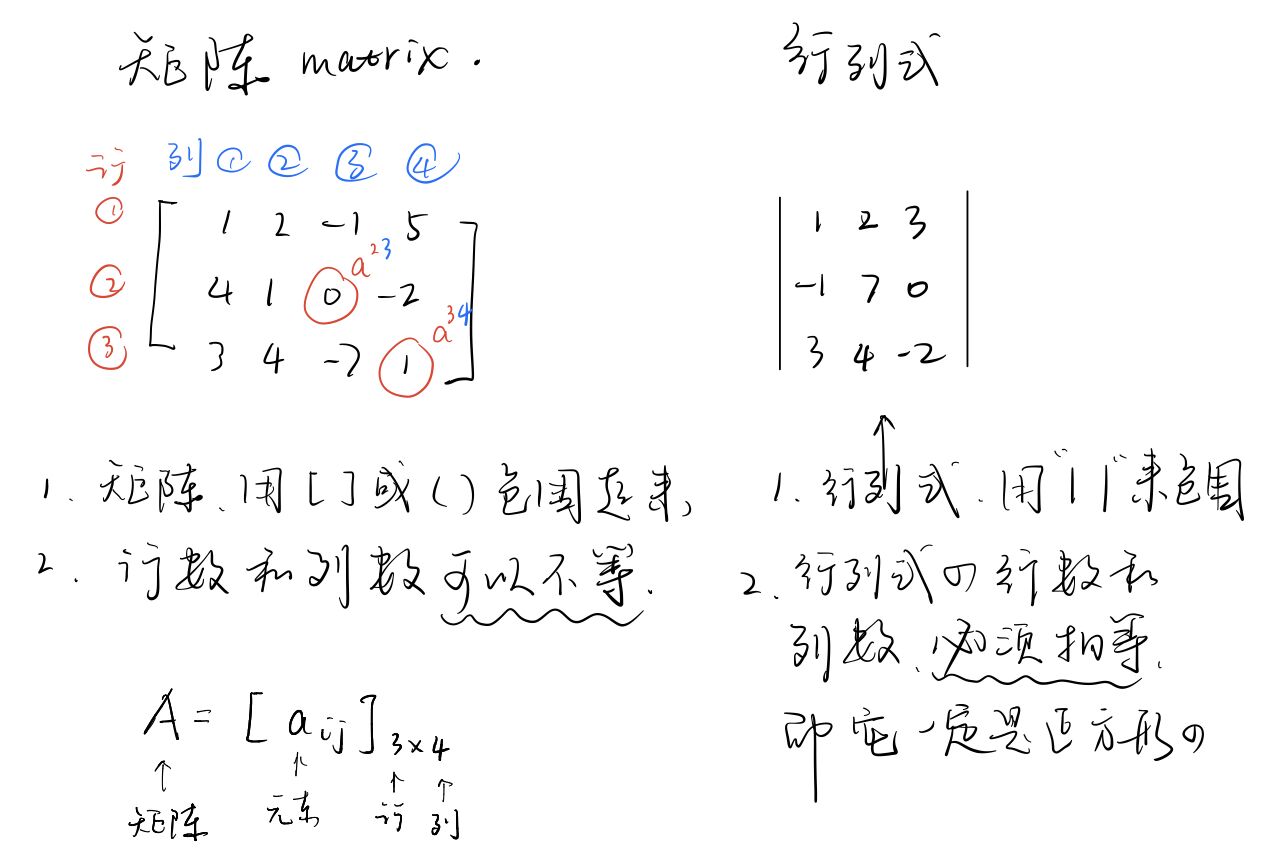 矩阵 matrix.
行 列 ① ② ③ ④
① 1 2 -1 5
② 4 1 0 a²³ -2
③ 3 4 -7 1 a³⁴
1. 矩阵、用[ ]或( )包围起来,
2. 行数和列数可以不等.
A = [aij]3×4
↑ ↑ ↑ ↑
矩阵 元素 行 列
行列式
| 1 2 3 |
| -1 7 0 |
| 3 4 -2 |
↑
1. 行列式、用"| |"来包围
2. 行列式の行数和
列数、必须相等.
即它一定是正方形の